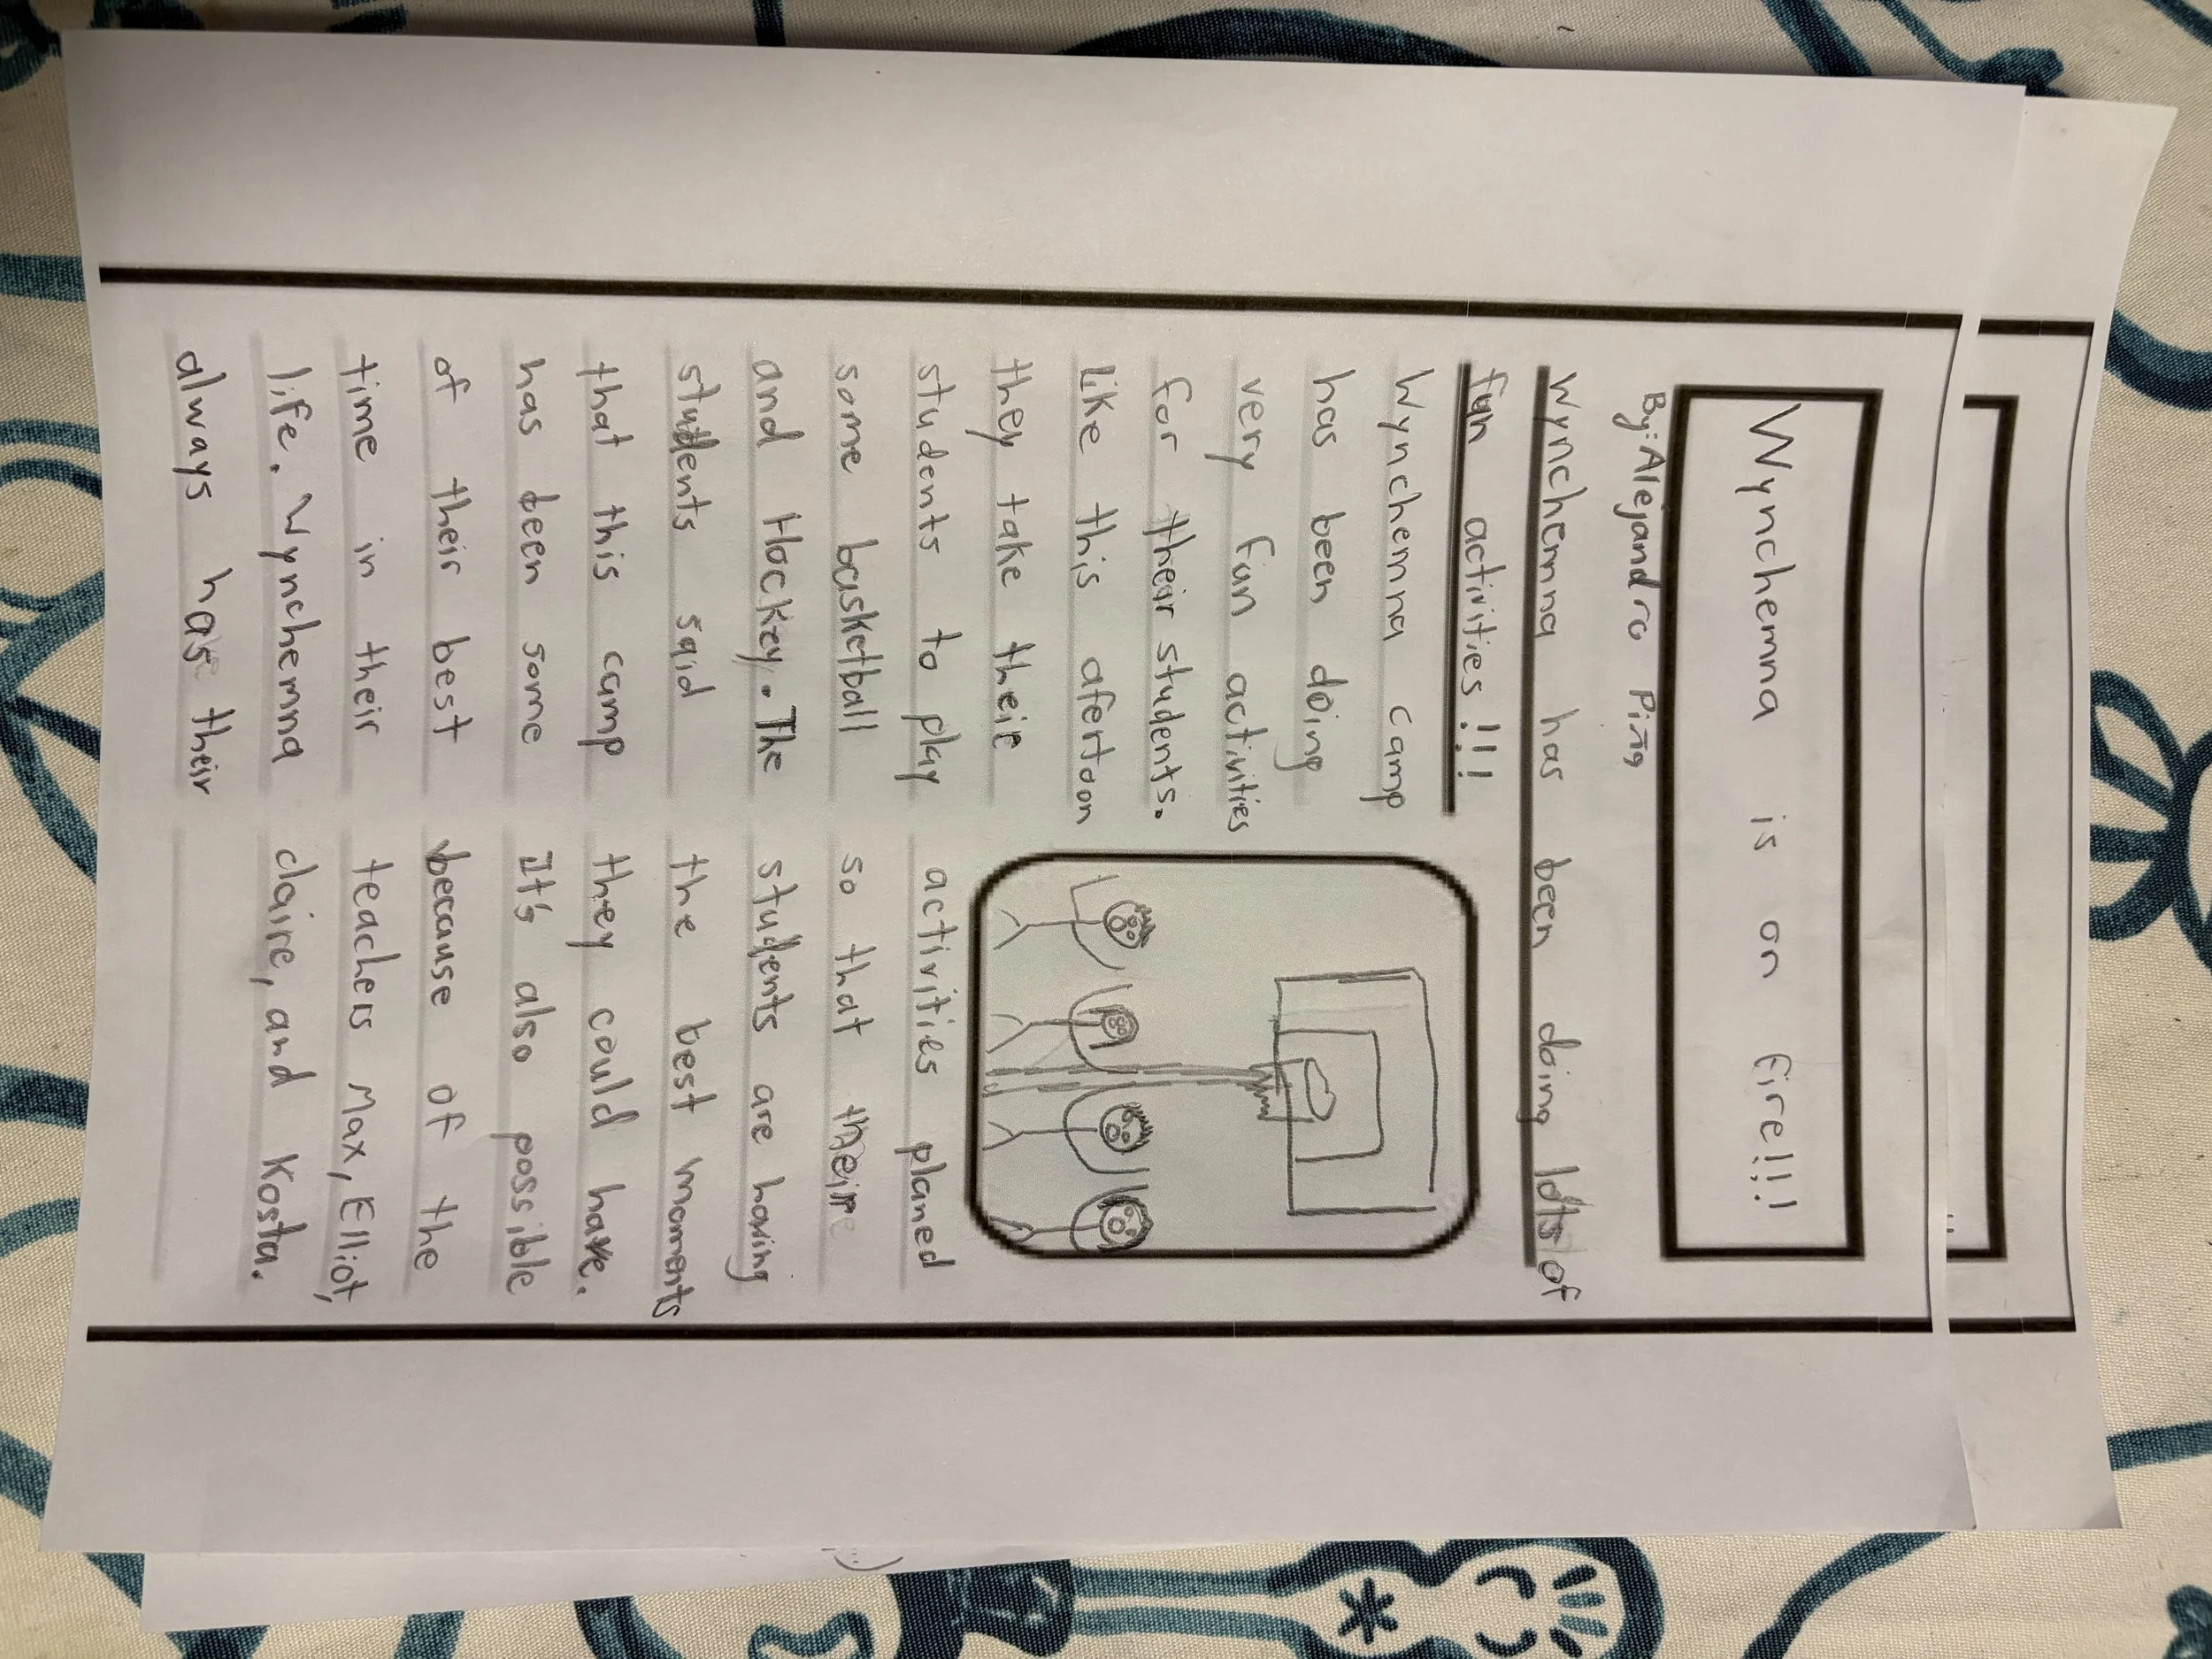 Wynchemna is on fire!!!
By: Alejandro Piña
Wynchemna has been doing lots of
fun activities!!!
Wynchemna camp
has been doing
very fun activities
for their students.
Like this afertoon
they take their
students to play
some basketball
and Hockey. The
students said
that this camp
has been some
of their best
time in their
life. Wynchemna
always has their
activities planed
so that their
students are having
the best moments
they could have.
It's also possible
because of the
teachers Max, Elliot,
claire, and Kosta.